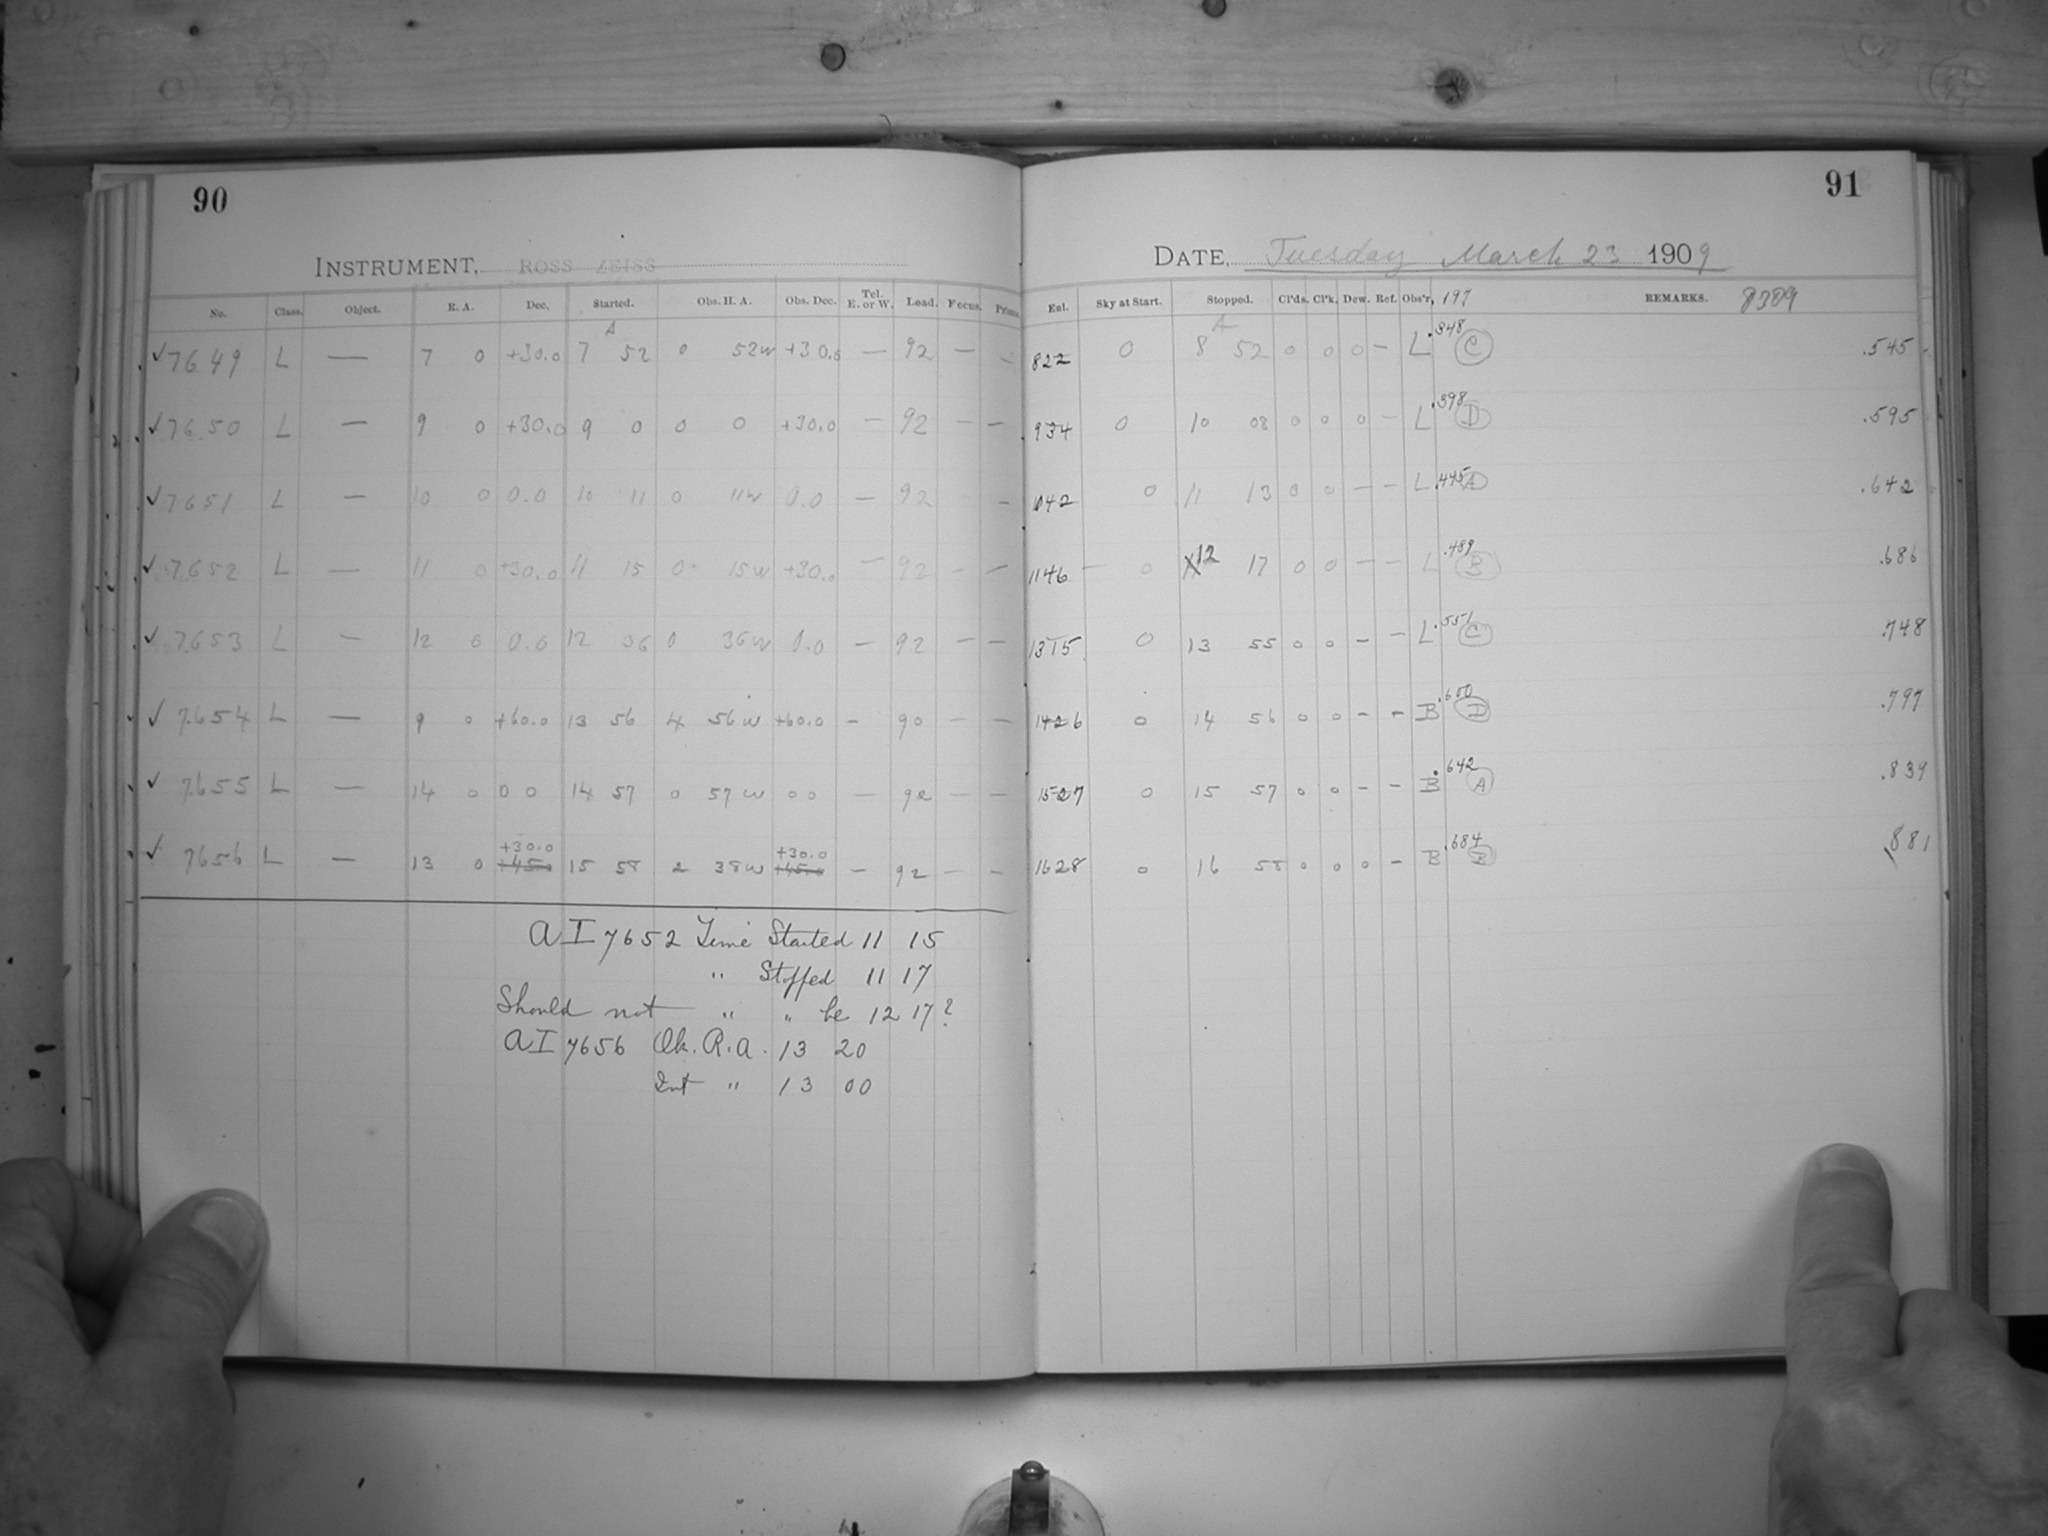 90
91
INSTRUMENT, ROSS ZEISS
DATE, Tuesday March 23 1909
No. Class. Object. R. A. Dec. Started. Obs. H. A. Obs. Dec. Tel. E. or W. Load. Focus. Prisms. Exl. Sky at Start. Stopped. Cl'ds. Cl'k. Dew. Ref. Obs'r, 197 REMARKS. 8389
A A
✓ 7649 L — 7 0 +30.0 7 52 0 52w +30.0 — 92 — — 822 0 8 52 0 0 0 — L .348 C .545
✓ 7650 L — 9 0 +30.0 9 0 0 0 +30.0 — 92 — — 934 0 10 08 0 0 0 — L .398 D .595
✓ 7651 L — 10 0 0.0 10 11 0 11w 0.0 — 92 — — 1042 0 11 13 0 0 — — L .445 A .642
✓ 7652 L — 11 0 +30.0 11 15 0 15w +30.0 — 92 — — 1146 0 12 17 0 0 — — L .489 B .686
✓ 7653 L — 12 0 0.0 12 36 0 36w 0.0 — 92 — — 1315 0 13 55 0 0 — — L .551 C .748
✓ 7654 L — 9 0 +60.0 13 56 4 56w +60.0 — 90 — — 1426 0 14 56 0 0 — — B .600 D .797
✓ 7655 L — 14 0 0 0 14 57 0 57w 0 0 — 92 — — 1527 0 15 57 0 0 — — B .642 A .839
✓ 7656 L — 13 0 +30.0 +45.0 15 58 2 38w +30.0 +45.0 — 92 — — 1628 0 16 58 0 0 0 — B .684 B .881
AI 7652 Time Started 11 15
" Stopped 11 17
Should not " " be 12 17?
AI 7656 Ok. R.a. 13 20
Int " 13 00